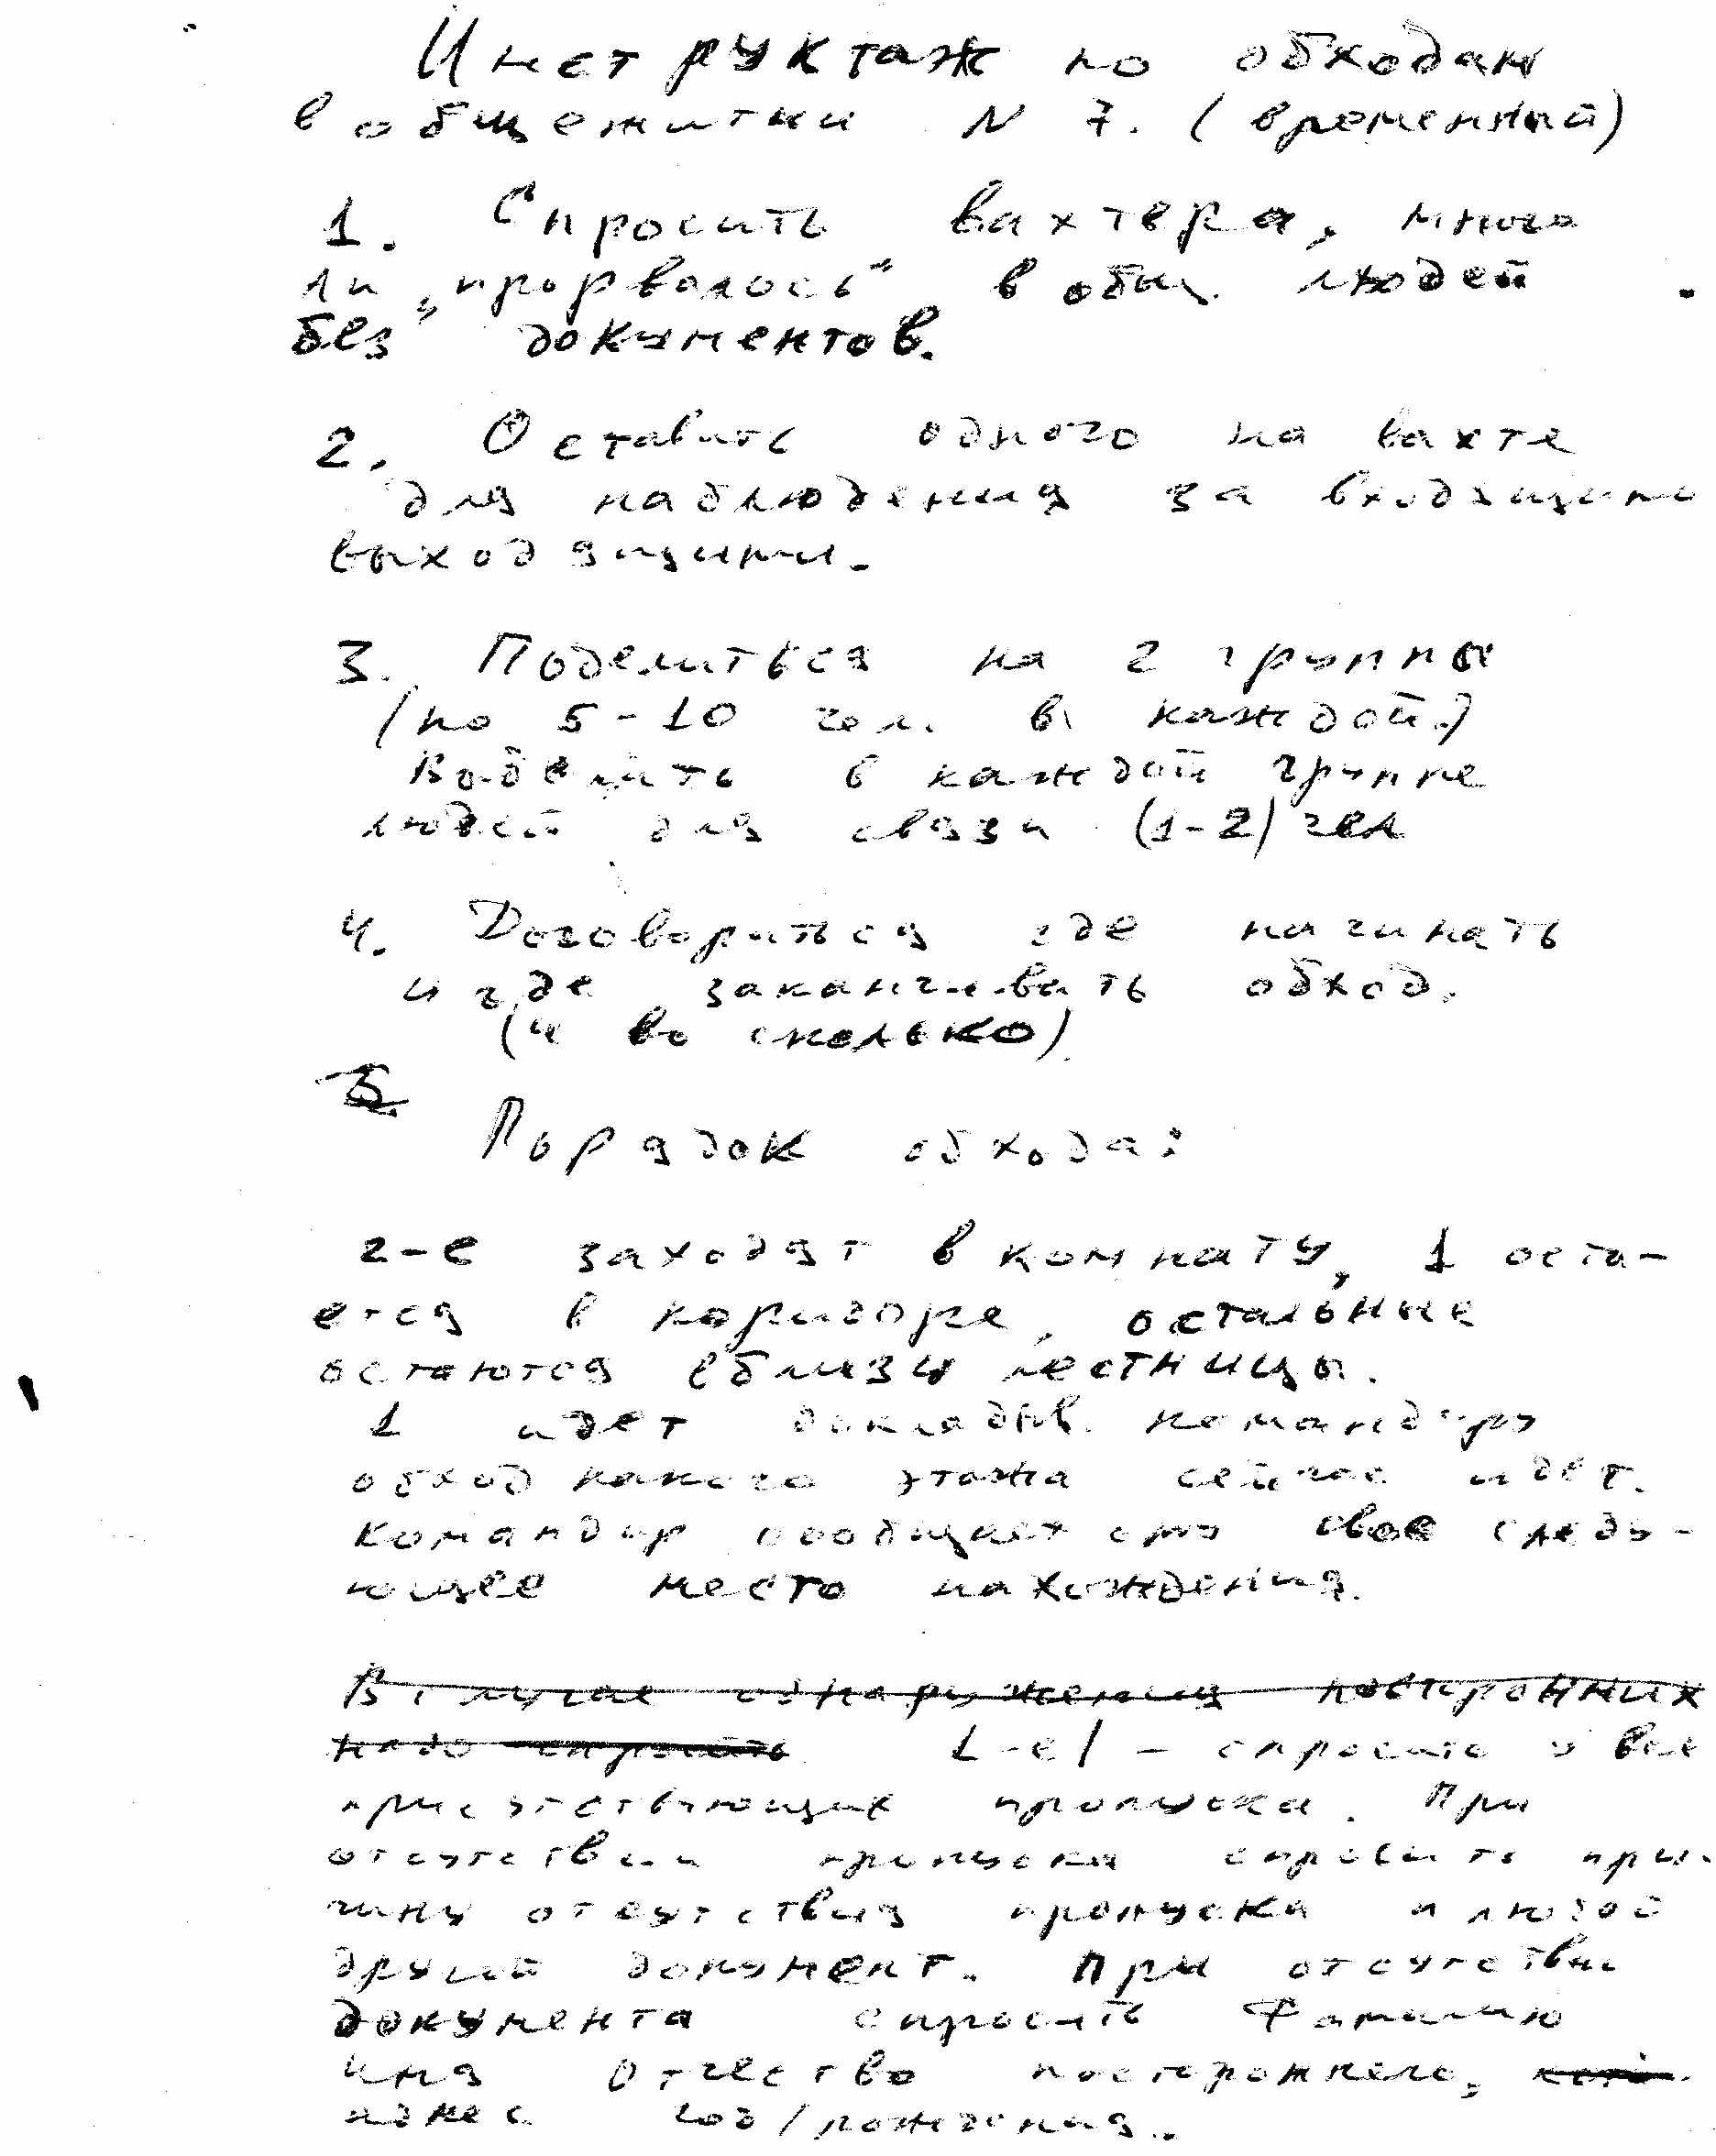 Инструктаж по обходам
в общежитии N 7. (временный)
1. Спросить вахтера, много
ли „прорвалось“ в общ. людей
без документов.
2. Оставить одного на вахте
для наблюдения за входящими
выходящими.
3. Поделиться на 2 группы
(по 5-10 чел. в каждой.)
Выделить в каждой группе
людей для связи (1-2) чел
4. Договориться где начинать
и где заканчивать обход.
(и во сколько)
5.
Порядок обхода:
2-е заходят в комнату, 1 оста-
ется в коридоре, остальные
остаются вблизи лестницы.
1 идет докладыв. командиру
обход какого этажа сейчас идет.
Командир сообщает ему свое следу-
ющее место нахождения.
В случае обнаружения посторонних
надо спросить 1-е/ - спросить у все
присутствующих пропуска. При
отсутствии пропуска спросить при-
чину отсутствия пропуска и любой
другой документ. При отсутствии
документа спросить Фамилию
имя отчество постороннего,
адрес год/рождения.